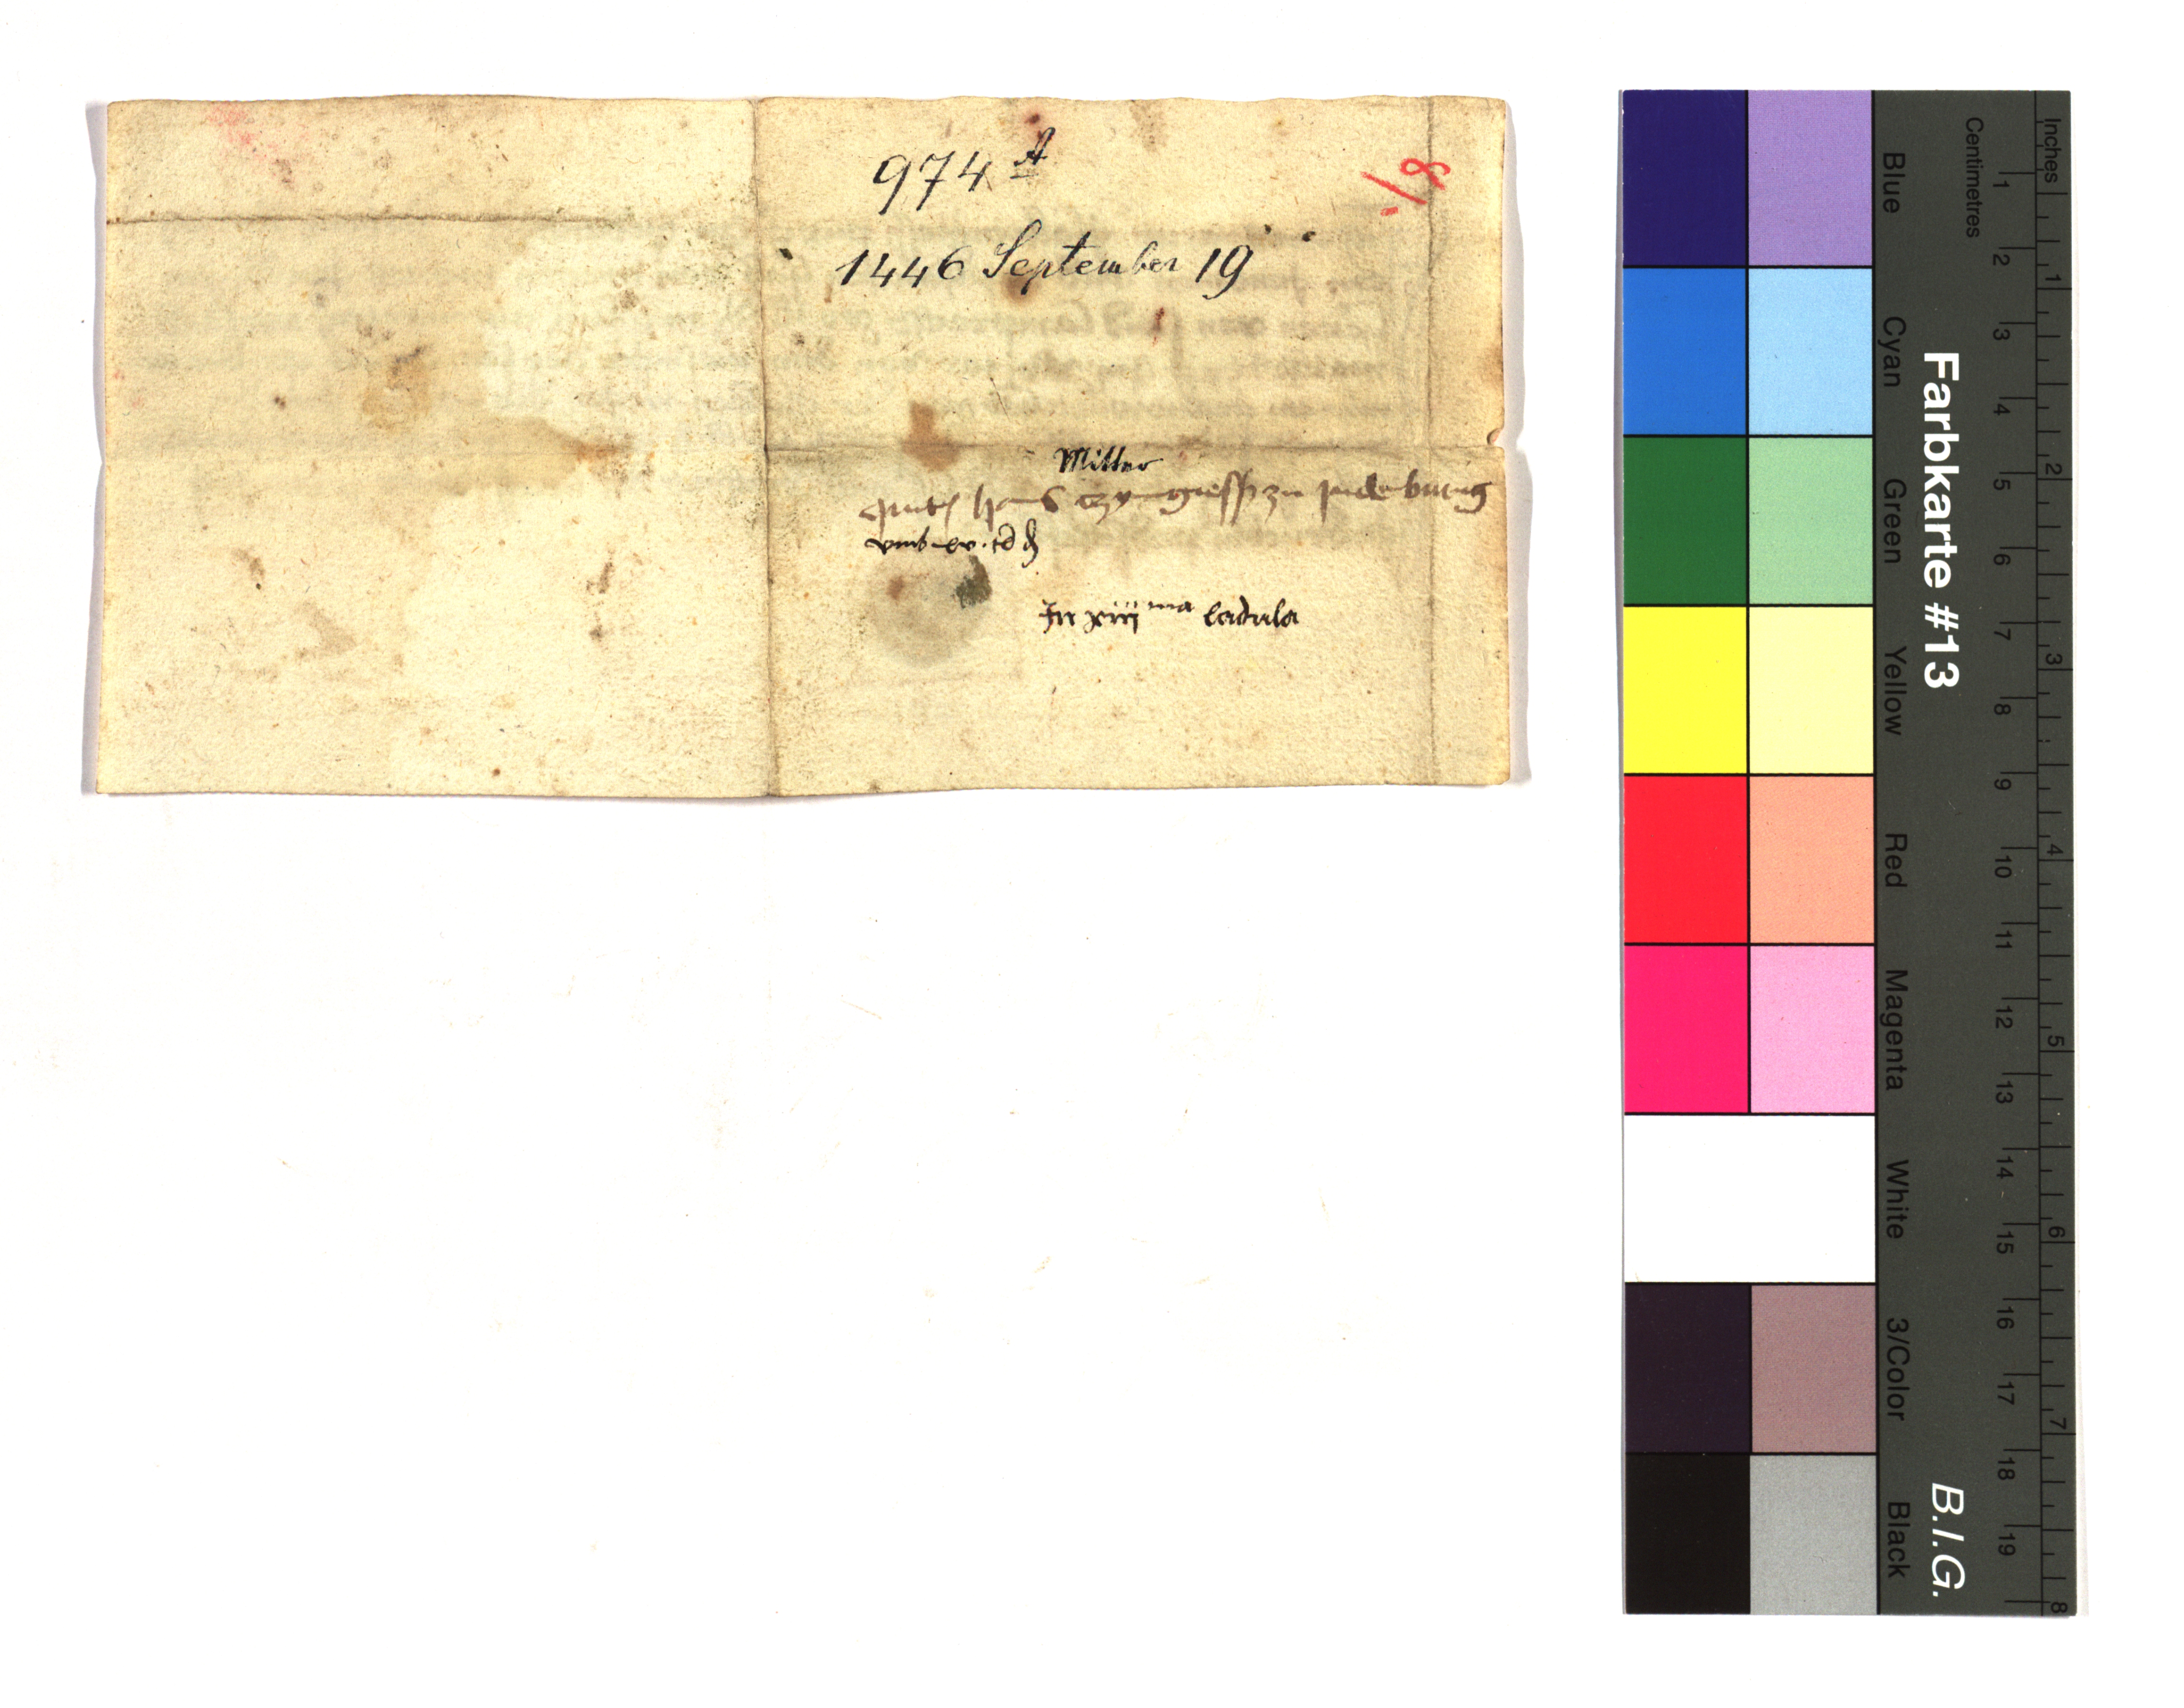 974 A
8/.
1446 September 19
Mitter
hans zu Judeburg
vmb xv . td
In xiii ma ladula
Farbkarte #13
B.I.G.
Blue
Cyan
Green
Yellow
Red
Magenta
White
3/Color
Black
Centimetres
1 2 3 4 5 6 7 8 9 10 11 12 13 14 15 16 17 18 19
Inches
1 2 3 4 5 6 7 8